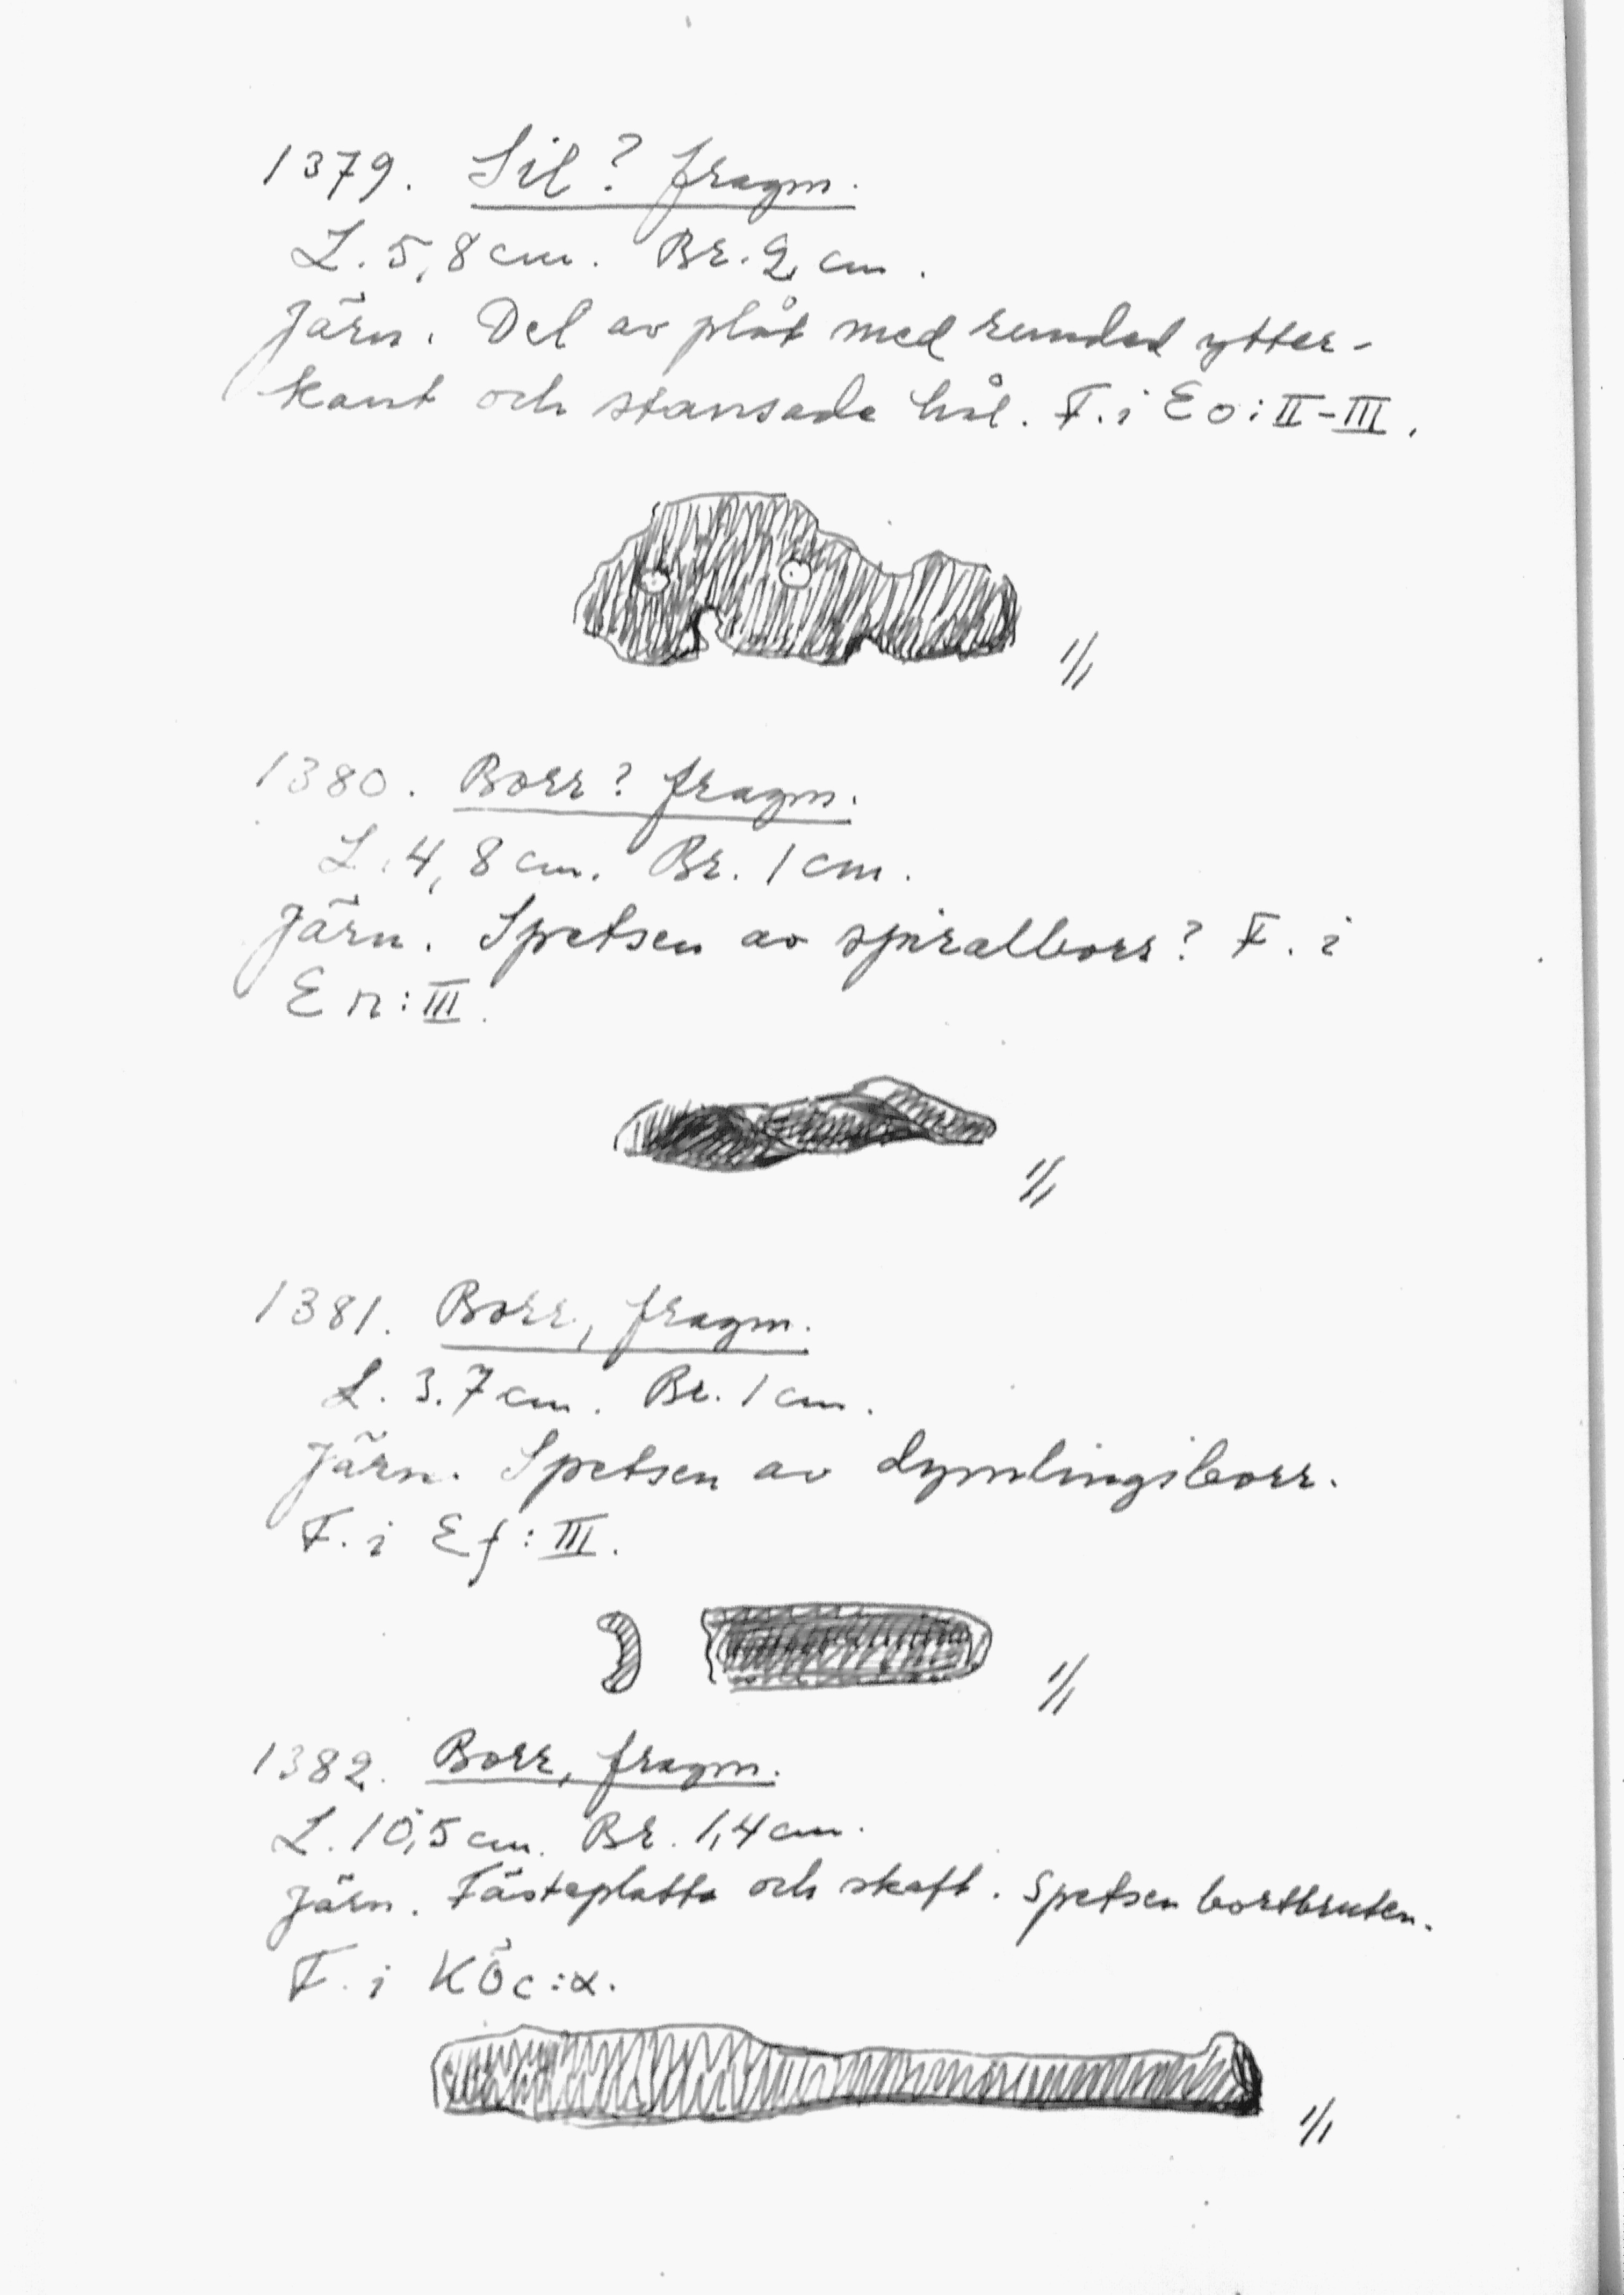 1379. Sil? fragm.
L. 5,8 cm. Br. 2 cm.
Järn. Del av plåt med rundad ytter-
kant och stansade hål. F. i Eo:II-III.
1/1
1380. Borr? fragm.
L. 4,8 cm. Br. 1 cm.
Järn. Spetsen av spiralborr? F. i
En:III.
1/1
1381. Borr, fragm.
L. 3.7 cm. Br. 1 cm.
Järn. Spetsen av dymlingsborr.
F. i Ef:III.
1/1
1382. Borr, fragm.
L. 10,5 cm. Br. 1,4 cm.
Järn. Fästeplatta och skaft. Spetsen bortbruten.
F. i KÖc:α.
1/1